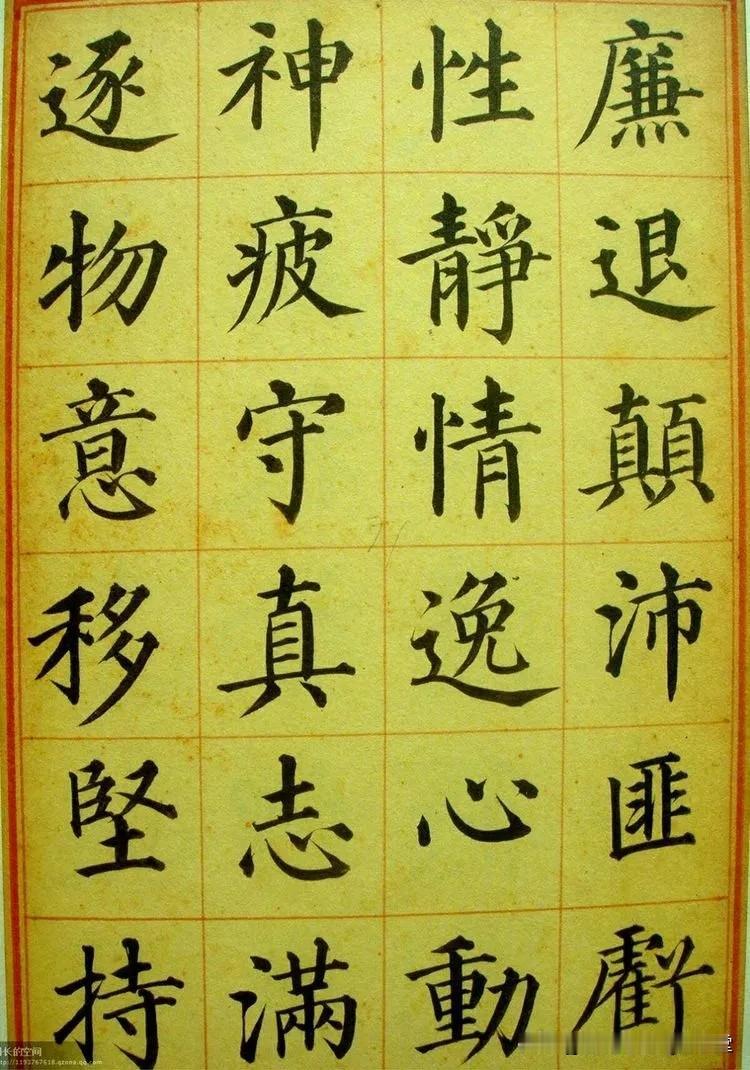 廉退顛沛匪虧
性靜情逸心動
神疲守真志滿
逐物意移堅持
長的空间
http://1193767618.qzone.qq.com